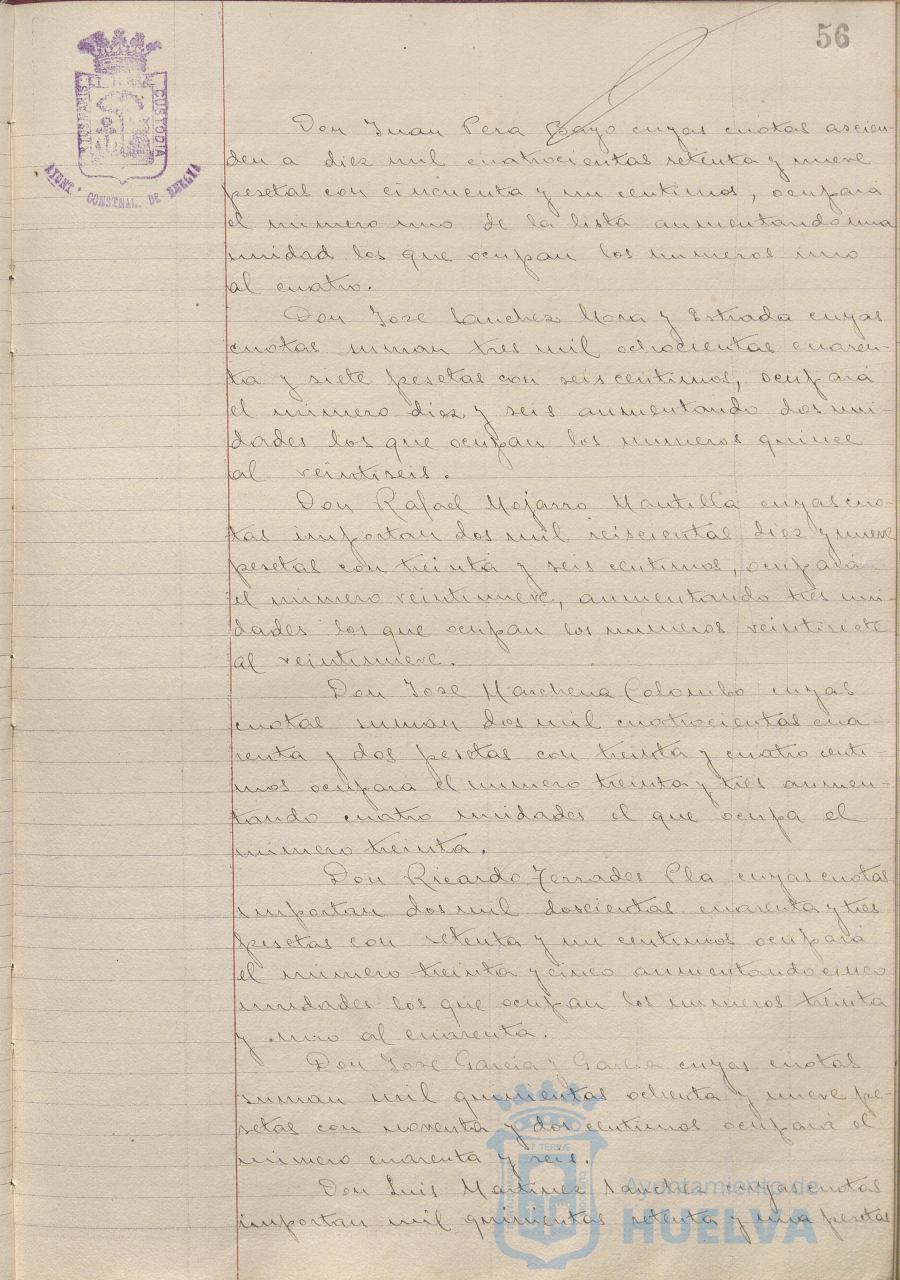 56
PORTUS MARIS ET TERRÆ CUSTODIA
AYUNT. CONSTNAL. DE HUELVA
Don Juan Pera Gayo cuyas cuotas ascien-
den a diez mil cuatrocientas setenta y nueve
pesetas con cincuenta y un centimos, ocupará
el número uno de la lista aumentando una
unidad los que ocupan los numeros uno
al cuatro.
Don Jose Sanchez Mora y Estrada cuyas
cuotas suman tres mil ochocientas cuaren-
ta y siete pesetas con seis centimos, ocupará
el número diez y seis aumentando dos uni-
dades los que ocupan los numeros quince
al veintiseis.
Don Rafael Mojarro Mantilla cuyas cuo-
tas importan dos mil seiscientas diez y nueve
pesetas con treinta y seis centimos, ocupará
el número veintinueve, aumentando tres uni-
dades los que ocupan los numeros veintisiete
al veintinueve.
Don Jose Marchena Colombo cuyas
cuotas suman dos mil cuatrocientas cua-
renta y dos pesetas con treinta y cuatro centi-
mos ocupara el numero treinta y tres aumen-
tando cuatro unidades el que ocupa el
número treinta.
Don Ricardo Terrades Pla cuyas cuotas
importan dos mil doscientas cuarenta y tres
pesetas con setenta y un centimos ocupará
el número treinta y cinco aumentando cinco
unidades los que ocupan los numeros treinta
y uno al cuarenta.
Don Jose Garcia y Garcia cuyas cuotas
suman mil quinientas ochenta y nueve pe-
setas con noventa y dos centimos ocupará el
número cuarenta y seis.
Don Luis Martinez Sanchez cuyas cuotas
importan mil quinientas setenta y una pesetas
Ayuntamiento de
HUELVA